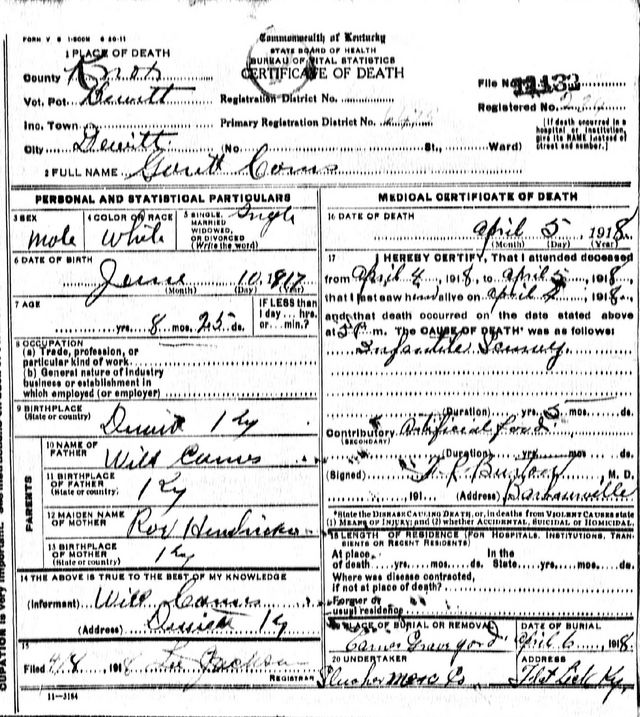 FORM V S 1-500M 6 20-11
Commonwealth of Kentucky
STATE BOARD OF HEALTH
BUREAU OF VITAL STATISTICS
CERTIFICATE OF DEATH
1 PLACE OF DEATH
County Knox
Vot. Pct. Dewitt Registration District No.
File No.
Registered No.
Inc. Town Primary Registration District No.
City Dewitt (No. St., Ward)
(If death occurred in a hospital or institution, give its NAME instead of street and number.)
2 FULL NAME
PERSONAL AND STATISTICAL PARTICULARS
3 SEX
Male
4 COLOR OR RACE
White
5 SINGLE, MARRIED, WIDOWED, OR DIVORCED (Write the word)
Single
6 DATE OF BIRTH
June 10 1917
(Month) (Day) (Year)
7 AGE
yrs. 8 mos. 25 ds.
IF LESS than 1 day... hrs. or... min.?
8 OCCUPATION
(a) Trade, profession, or particular kind of work
(b) General nature of industry business or establishment in which employed (or employer)
9 BIRTHPLACE
(State or country)
Dewitt Ky
PARENTS
10 NAME OF FATHER
Will
11 BIRTHPLACE OF FATHER
(State or country)
Ky
12 MAIDEN NAME OF MOTHER
13 BIRTHPLACE OF MOTHER
(State or country)
Ky
14 THE ABOVE IS TRUE TO THE BEST OF MY KNOWLEDGE
(Informant) Will
(Address) Dewitt Ky
15
Filed 4/8 1918 Jackson
REGISTRAR
11-3184
MEDICAL CERTIFICATE OF DEATH
16 DATE OF DEATH
April 5 1918
(Month) (Day) (Year)
17 I HEREBY CERTIFY, That I attended deceased
from April 4 1918, to April 5, 1918,
that I last saw him alive on April 1918.
and that death occurred on the date stated above
at 5 P m. The CAUSE OF DEATH* was as follows:
Infantile Scurvy
(Duration) yrs. 5 mos. ds.
Contributory Artificial food
(SECONDARY)
(Duration) yrs. mos. ds.
(Signed) M. D.
191 (Address) Barbourville
*State the DISEASE CAUSING DEATH, or, in deaths from VIOLENT CAUSES state (1) MEANS OF INJURY; and (2) whether ACCIDENTAL, SUICIDAL or HOMICIDAL.
18 LENGTH OF RESIDENCE (FOR HOSPITALS, INSTITUTIONS, TRANSIENTS OR RECENT RESIDENTS)
At place of death yrs. mos. ds. In the State yrs. mos. ds.
Where was disease contracted, if not at place of death?
Former or usual residence
19 PLACE OF BURIAL OR REMOVAL
Graveyard
DATE OF BURIAL
April 6 1918
20 UNDERTAKER
ADDRESS
Flat Lick Ky